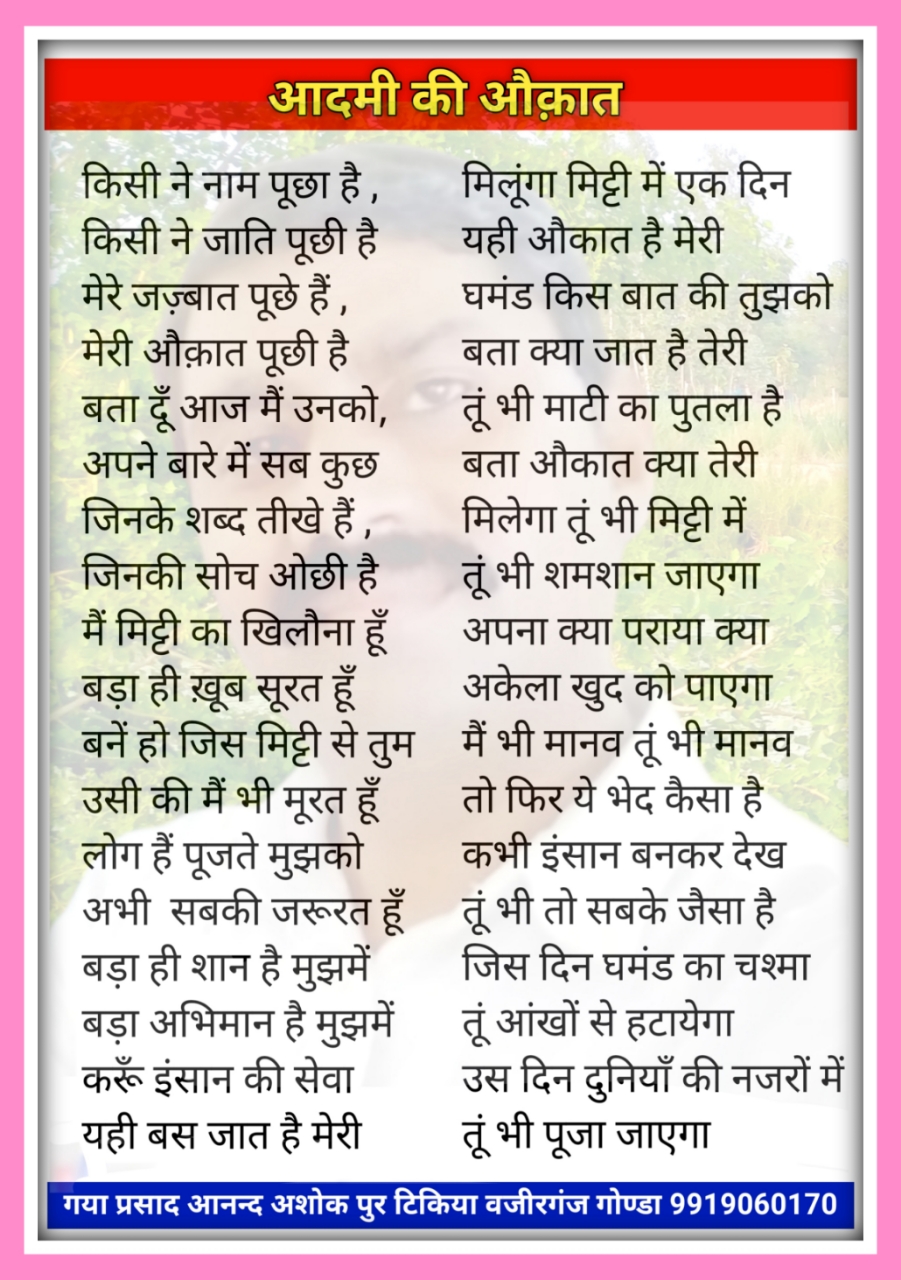 आदमी की औक़ात
किसी ने नाम पूछा है ,
किसी ने जाति पूछी है
मेरे जज़्बात पूछे हैं ,
मेरी औक़ात पूछी है
बता दूँ आज मैं उनको,
अपने बारे में सब कुछ
जिनके शब्द तीखे हैं ,
जिनकी सोच ओछी है
मैं मिट्टी का खिलौना हूँ
बड़ा ही ख़ूब सूरत हूँ
बनें हो जिस मिट्टी से तुम
उसी की मैं भी मूरत हूँ
लोग हैं पूजते मुझको
अभी  सबकी जरूरत हूँ
बड़ा ही शान है मुझमें
बड़ा अभिमान है मुझमें
करूँ इंसान की सेवा
यही बस जात है मेरी
मिलूंगा मिट्टी में एक दिन
यही औकात है मेरी
घमंड किस बात की तुझको
बता क्या जात है तेरी
तूं भी माटी का पुतला है
बता औकात क्या तेरी
मिलेगा तूं भी मिट्टी में
तूं भी शमशान जाएगा
अपना क्या पराया क्या
अकेला खुद को पाएगा
मैं भी मानव तूं भी मानव
तो फिर ये भेद कैसा है
कभी इंसान बनकर देख
तूं भी तो सबके जैसा है
जिस दिन घमंड का चश्मा
तूं आंखों से हटायेगा
उस दिन दुनियाँ की नजरों में
तूं भी पूजा जाएगा
गया प्रसाद आनन्द अशोक पुर टिकिया वजीरगंज गोण्डा 9919060170